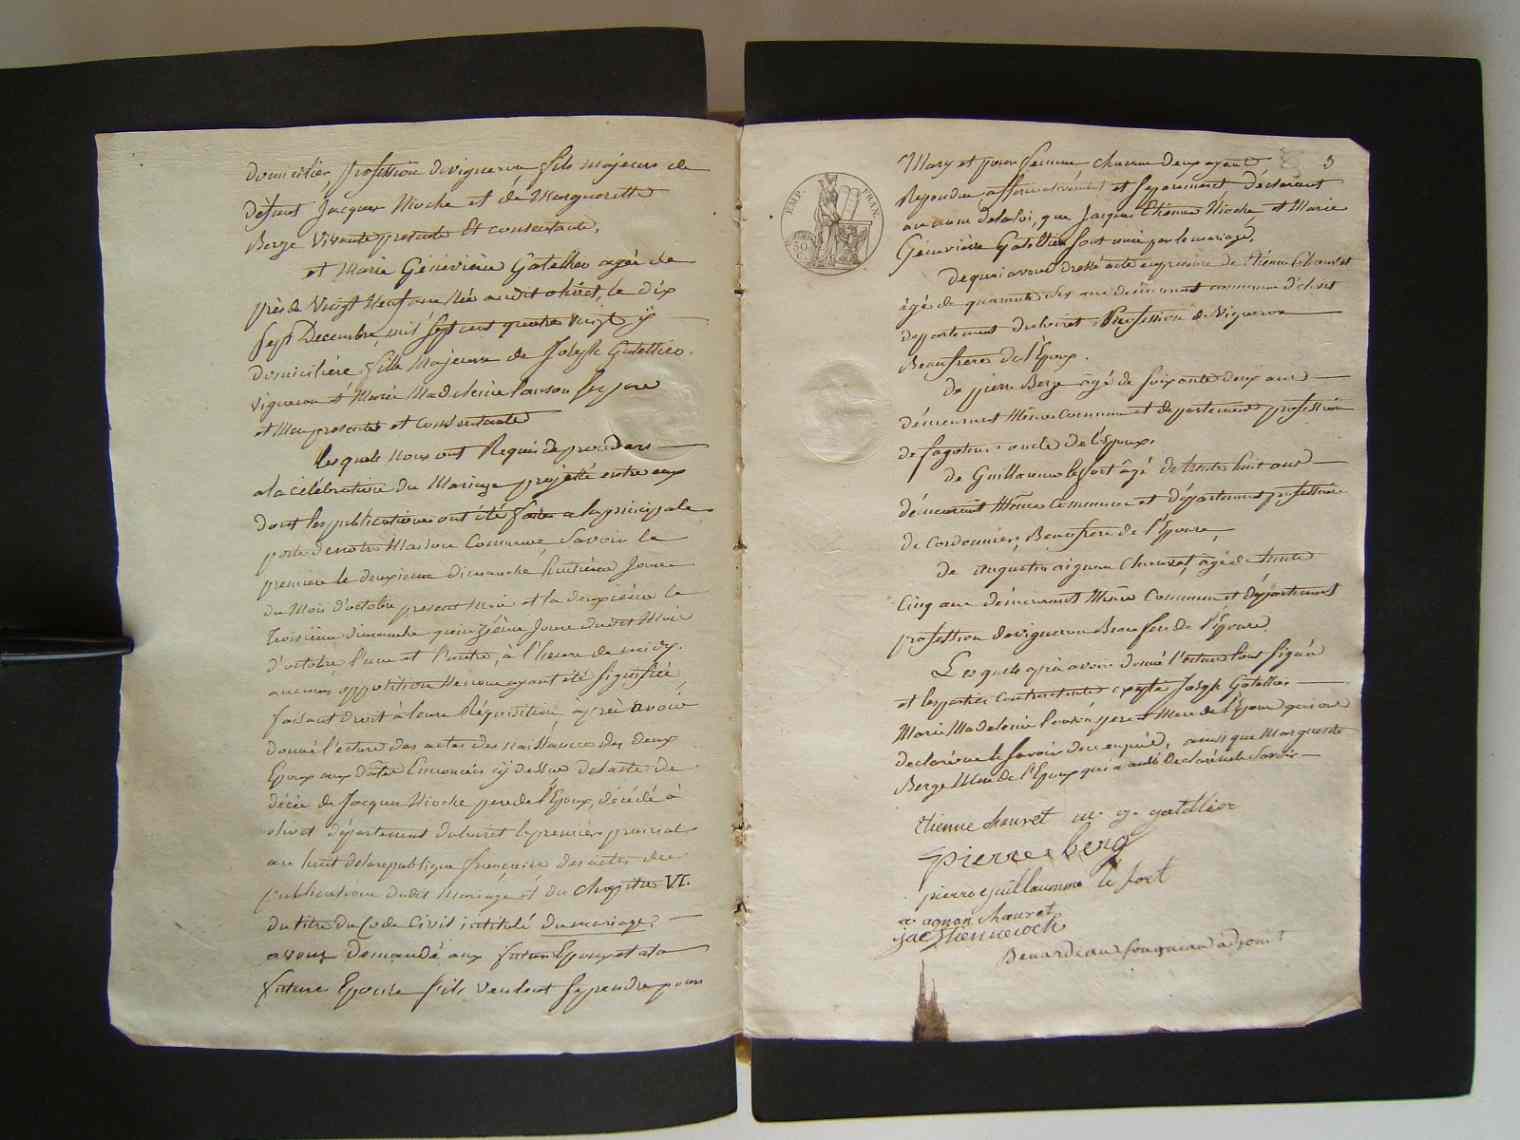 domicilier, profession de vigneron, fils majeur de
defunt Jacques Nioche et de Margueritte
Berge Vivante presente et consentante,
et Marie Géneviève Gatellier agée de
près de Vingt Neuf ans Née audit olivet, le dix
sept Decembre mil sept cent quatre vingt
domicilière, fille Majeure de Joseph Gatellier
vigneron et Marie Madeleine ses pere
et Mere presentes et consentantes
lesquels nous ont Requis de proceder
a la celebration du Mariage projetté entre eux
dont les publications ont été faites a la principale
porte de notre Maison Commune Savoir la
premiere le deuxieme dimanche huitième Jour
du Mois d'octobre present Mois et la deuxième le
Troisième dimanche quinzième Jour dudit Mois
d'octobre l'une et l'autre, à l'heure de midy.
aucune opposition ne nous ayant été signifiée,
faisant droit à leur Réquisition après avoir
donné l'ecture des actes des naissances des deux
Epoux aux dates Enoncées cy dessus de l'acte de
décès de Jacques Nioche pere de l'Epoux, décédé à
olivet département du loiret le premier prairial
an huit de la republique françoise des actes de
publications dudit Mariage et du Chapitre VI.
du titre du Code Civil intitulé du mariage,
avons Demandé aux futur Epoux et a la
future Epouse s'ils veulent se prendre pour
3
Mary et pour femme, chacun d'eux ayant
Repondu affirmativement et séparement, Déclarons
au nom de la loi, que Jacques Etienne Nioche et Marie
Géneviève Gatellier sont unis par le mariage,
De quoi avons dressé acte en presence de Etienne Chauvet
âgé de quarante six ans demeurant commune d'olivet
departement du loiret, Profession de Vigneron
Beaufrere de l'Epoux.
De pierre Berge âgé de soixante deux ans
démeurant Même Commune et departement, profession
de oncle de l'Epoux,
de Guillaume lefort âgé de trente huit ans
démeurant Même Commune et département profession
de Cordonnier, Beaufrere de l'Epouse,
de aignan Chauvet, âgé de trente
Cinq ans démeurant Même Commune et département
profession de vigneron Beaufrere de l'Epouse
Lesquels après avoir donné l'ecture l'ont signé
et les parties contractantes excepté Joseph Gatellier
Marie Madeleine pere et Mere de l'Epouse qui ont
declaré ne le savoir de ce enquis, ainsi que Marguerite
Berge Mere de l'Epoux qui a aussi declaré ne le Savoir
etienne chauvet m. g. gatellier
pierre berg
pierre guillaumme le fort
a agnan chauvet
jac etienne nioche
adjoint
EMP. FRAN.
50